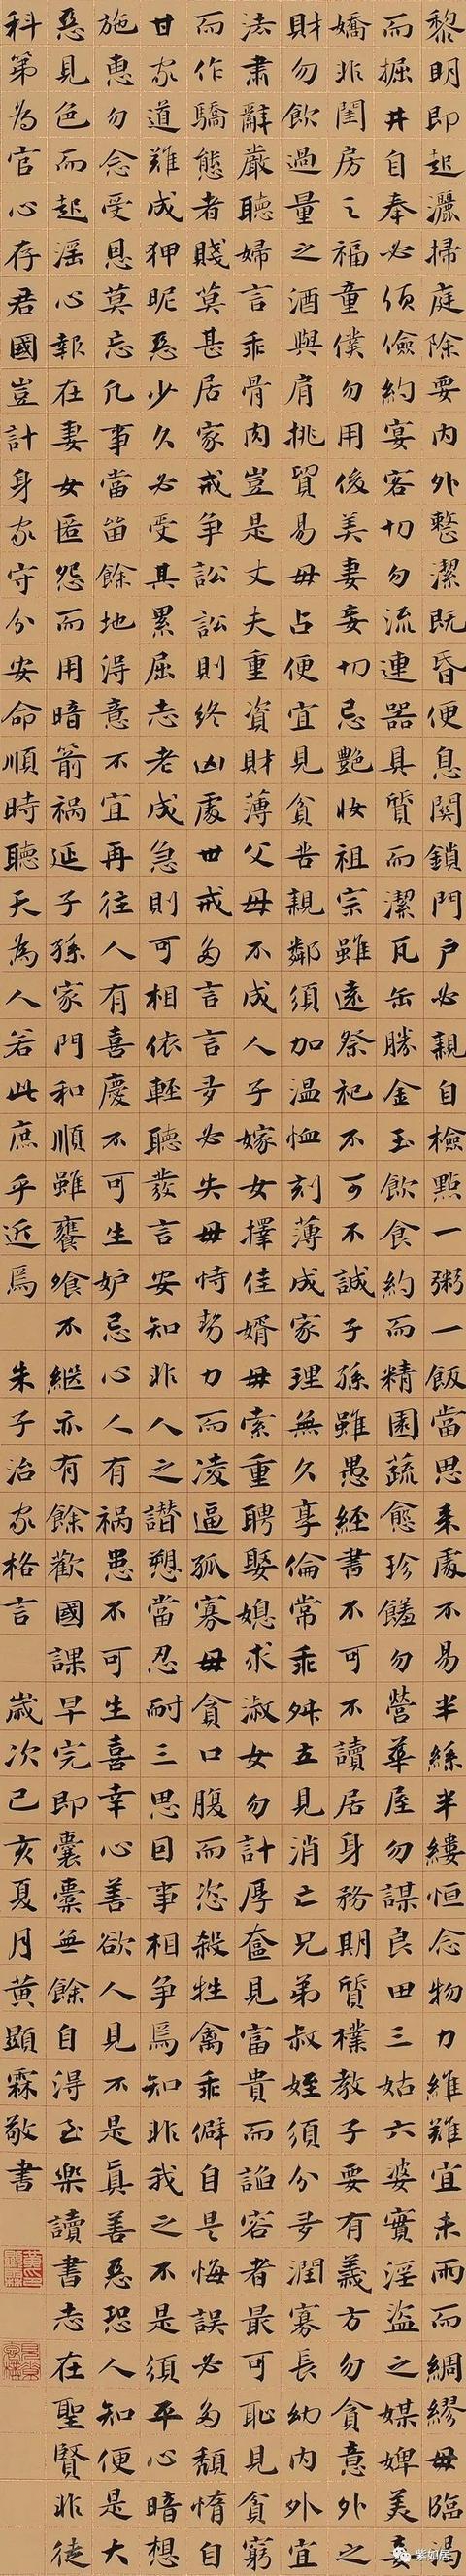 黎明即起灑掃庭除要内外整潔既昏便息関鎖門户必親自檢點一粥一飯當思来處不易半絲半縷恒念物力維難宜未雨而綢繆毋臨渴
而掘井自奉必須儉約宴客切勿流連器具質而潔瓦缶勝金玉飲食約而精園蔬愈珍饈勿營華屋勿謀良田三姑六婆實淫盗之媒婢美妾
嬌非閨房之福童僕勿用俊美妻妾切忌艷妝祖宗雖遠祭祀不可不誠子孫雖愚經書不可不讀居身務期質樸教子要有義方勿貪意外之
財勿飲過量之酒與肩挑貿易毋占便宜見貧苦親鄰須加温恤刻薄成家理無久享倫常乖舛立見消亡兄弟叔姪須分多潤寡長幼内外宜
法肅辭嚴聽婦言乖骨肉豈是丈夫重資財薄父母不成人子嫁女擇佳婿毋索重聘娶媳求淑女勿計厚奩見富貴而諂容者最可恥見貧窮
而作驕態者賤莫甚居家戒争訟訟則終凶處世戒多言言多必失毋恃勢力而凌逼孤寡毋貪口腹而恣殺牲禽乖僻自是悔誤必多頹惰自
甘家道難成狎昵惡少久必受其累屈志老成急則可相依輕聽發言安知非人之譖愬當忍耐三思因事相争焉知非我之不是須平心暗想
施惠勿念受恩莫忘凡事當留餘地得意不宜再往人有喜慶不可生妒忌心人有祸患不可生喜幸心善欲人見不是真善惡恐人知便是大
惡見色而起淫心報在妻女匿怨而用暗箭祸延子孫家門和順雖饔飧不継亦有餘歡國課早完即囊橐無餘自得至樂讀書志在聖賢非徒
科第為官心存君國豈計身家守分安命順時聽天為人若此庶乎近焉 朱子治家格言 歲次己亥夏月黄顯霖敬書
紫如居